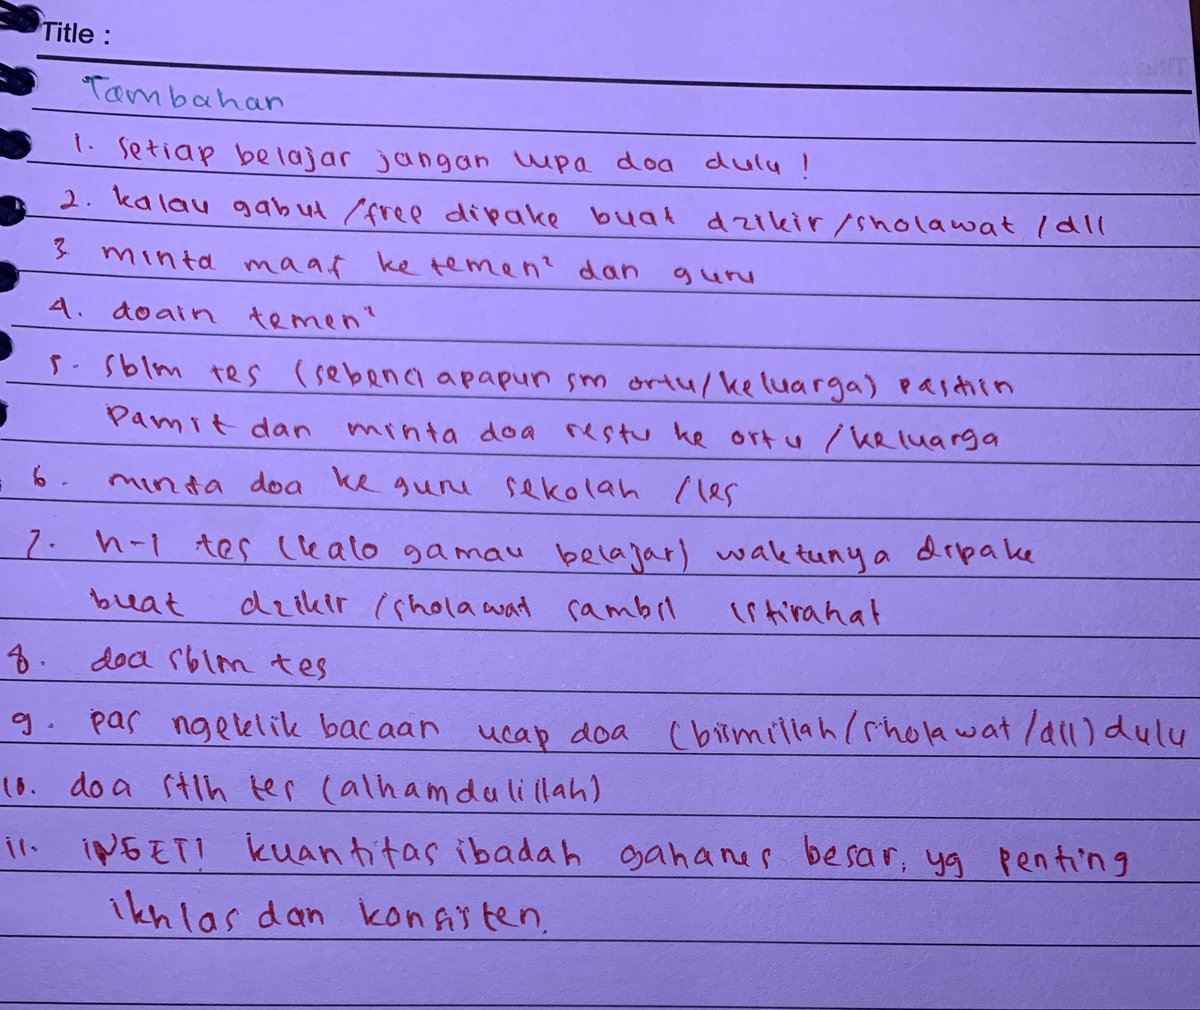 Title :
Tambahan
1. setiap belajar jangan lupa doa dulu !
2. kalau gabut /free dipake buat dzikir /sholawat /dll
3. minta maaf ke temen² dan guru
4. doain temen²
5. sblm tes (sebenci apapun sm ortu/keluarga) pastiin
pamit dan minta doa restu ke ortu /keluarga
6. minta doa ke guru sekolah /les
7. h-1 tes (kalo gamau belajar) waktunya dipake
buat dzikir /sholawat sambil istirahat
8. doa sblm tes
9. pas ngeklik bacaan ucap doa (bismillah/sholawat/dll) dulu
10. doa stlh tes (alhamdulillah)
11. INGET! kuantitas ibadah gaharus besar, yg penting
ikhlas dan konsisten.